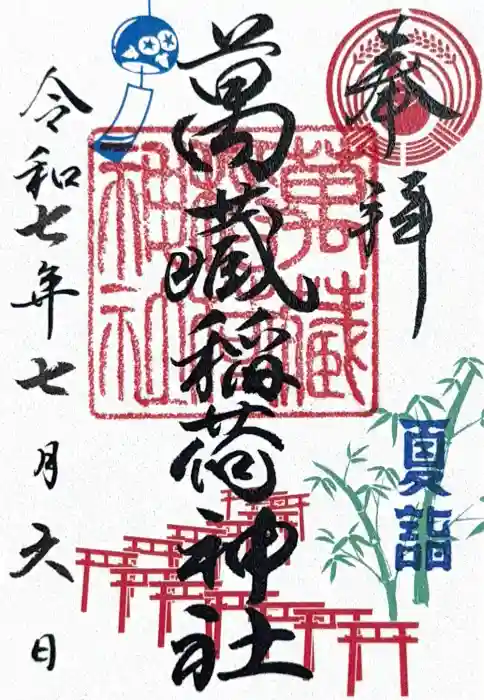 奉拝
夏詣
萬蔵稲荷神社
萬藏
神社
令和七年七月六日